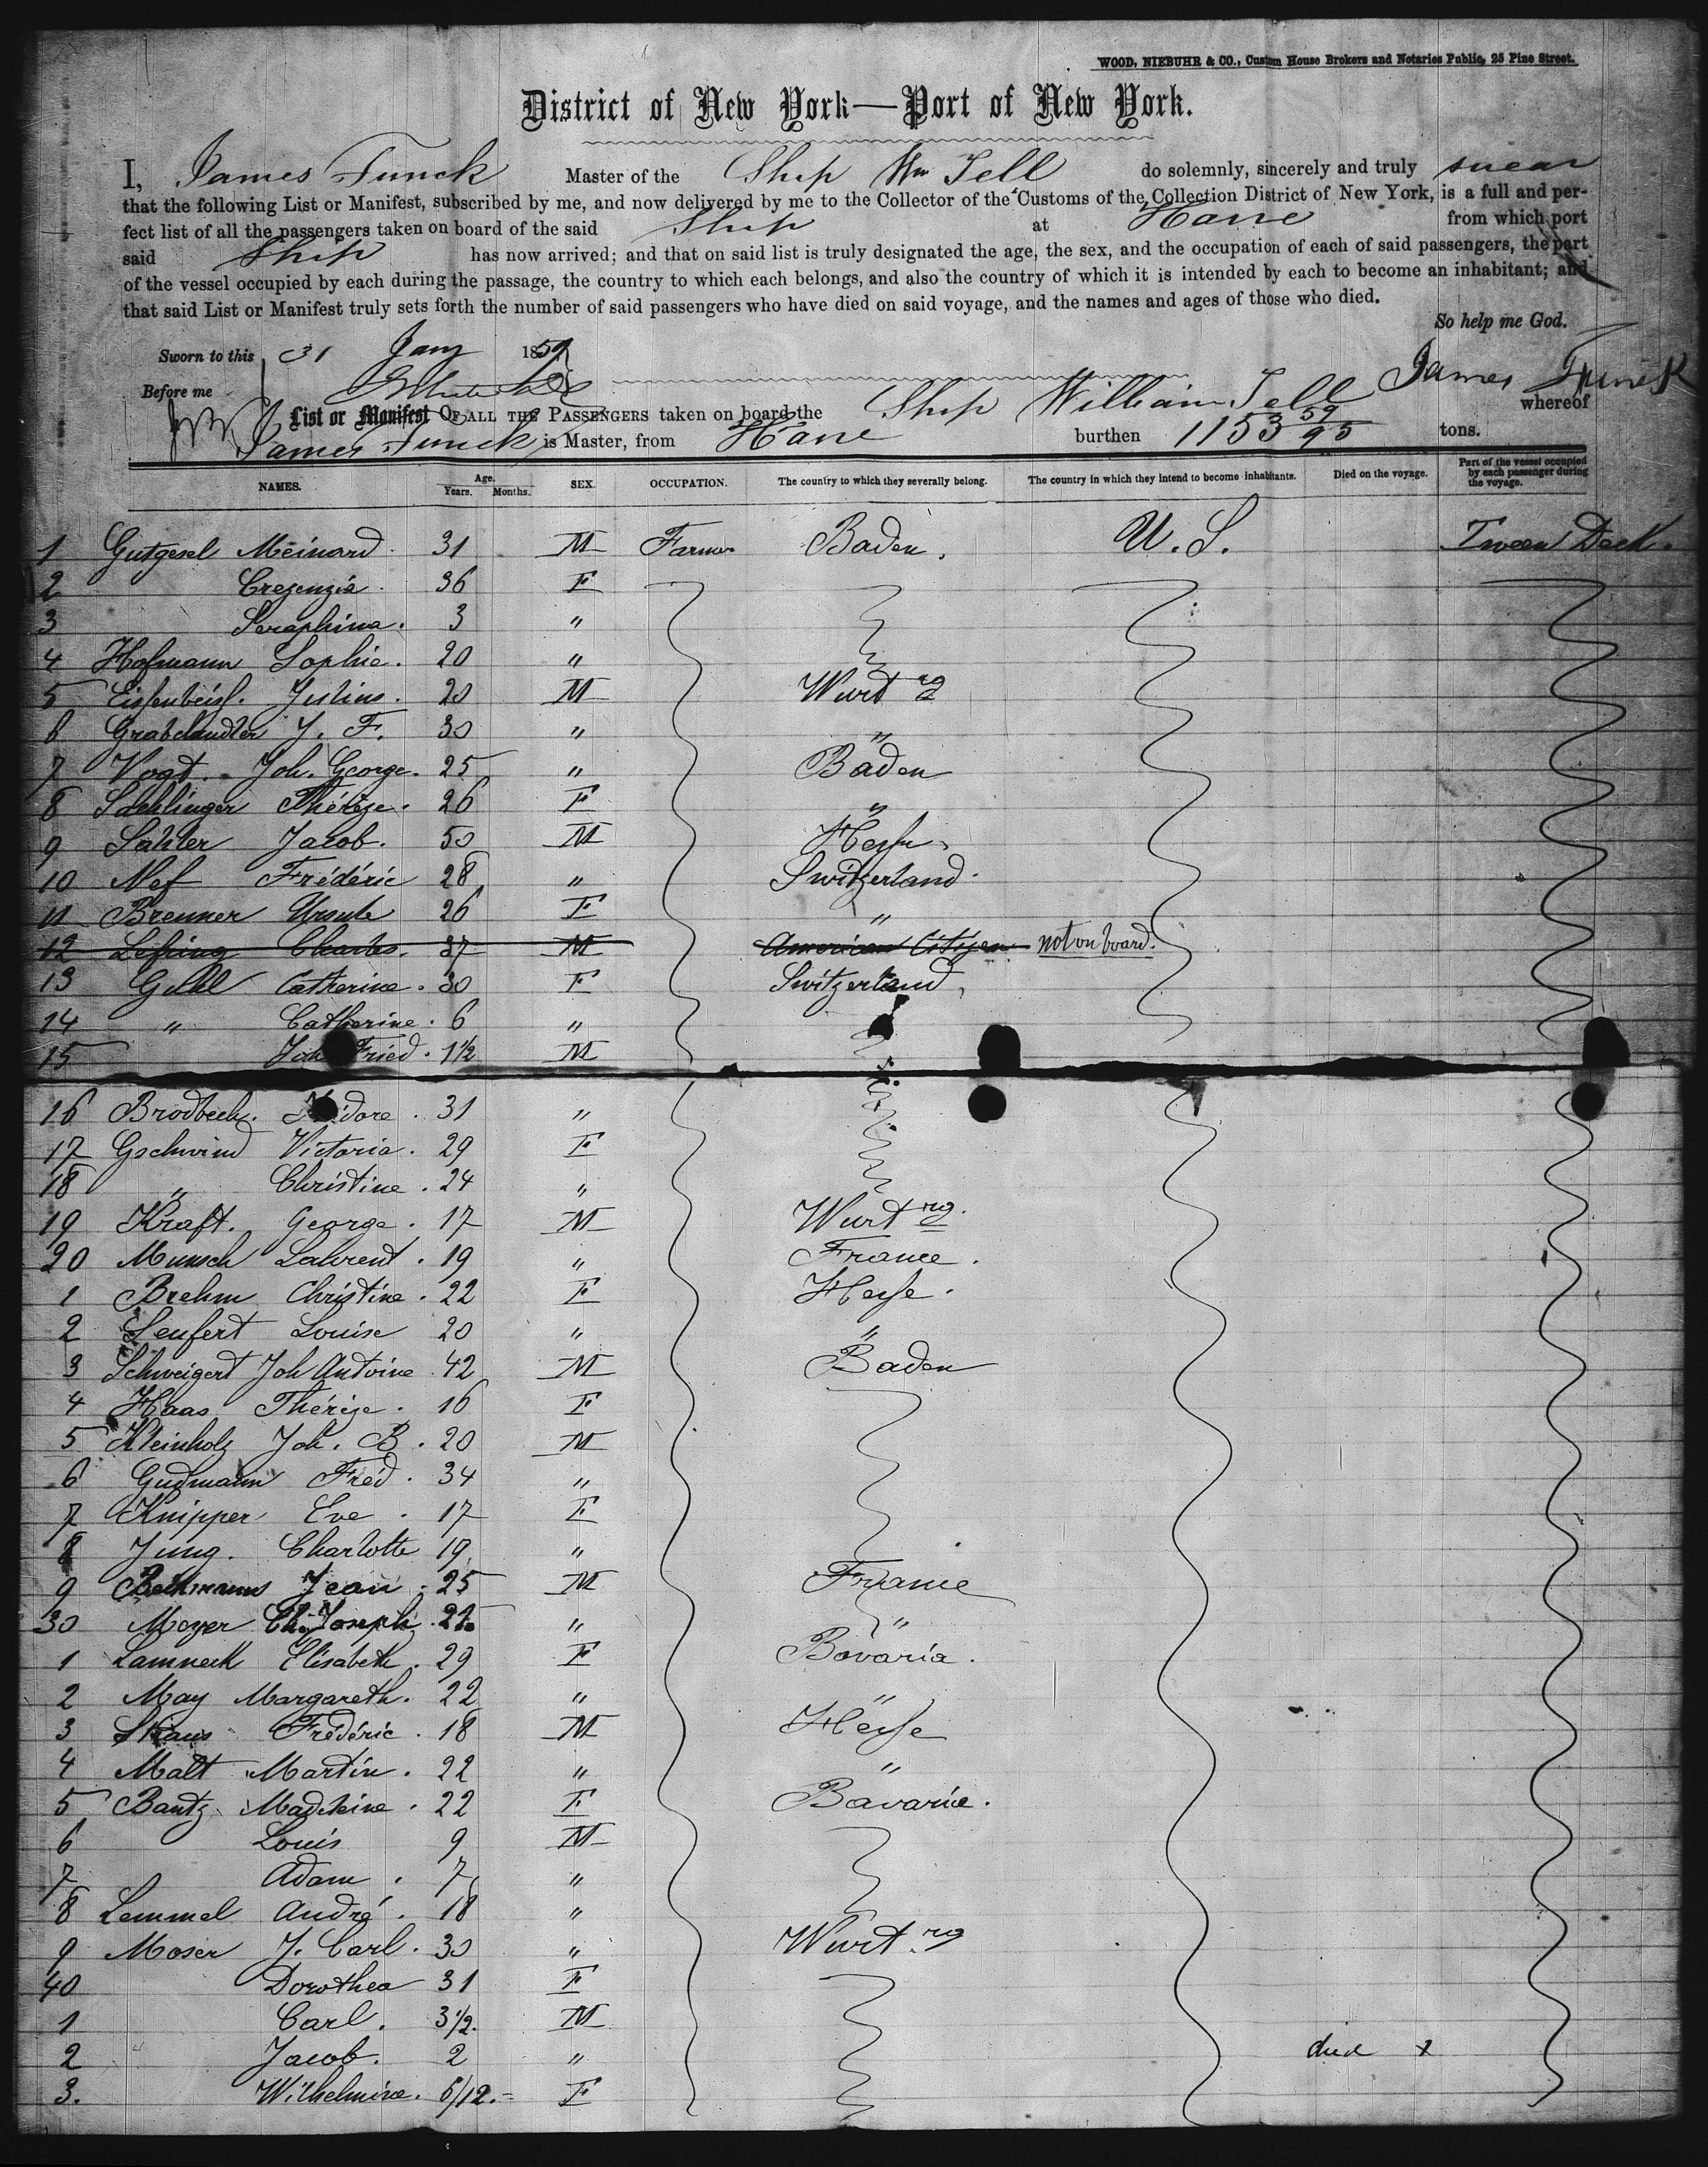 WOOD, NIEBUHR & CO., Custom House Brokers and Notaries Public, 25 Pine Street.
District of New York—Port of New York.
I, James Funck Master of the Ship Wm Tell do solemnly, sincerely and truly swear
that the following List or Manifest, subscribed by me, and now delivered by me to the Collector of the Customs of the Collection District of New York, is a full and per-
fect list of all the passengers taken on board of the said Ship at Havre from which port
said Ship has now arrived; and that on said list is truly designated the age, the sex, and the occupation of each of said passengers, the part
of the vessel occupied by each during the passage, the country to which each belongs, and also the country of which it is intended by each to become an inhabitant; and
that said List or Manifest truly sets forth the number of said passengers who have died on said voyage, and the names and ages of those who died.
So help me God.
Sworn to this 31 Jany 1859
James Funck
Before me
List or Manifest OF ALL THE PASSENGERS taken on board the Ship William Tell whereof
James Funck is Master, from Havre burthen 1153 59/95 tons.
NAMES. Age. Years. Months. SEX. OCCUPATION. The country to which they severally belong. The country in which they intend to become inhabitants. Died on the voyage. Part of the vessel occupied by each passenger during the voyage.
1 Gutgesel Meinard 31 M Farmer Baden. U.S. Tween Deck.
2 Crezenzia 36 F
3 Seraphina. 3 "
4 Hofmann Sophie. 20 "
5 Justins. 20 M Wurtrg
6 J. F. 30 " "
7 Vogt. Joh. George. 25 " Baden
8 Thérèze. 26 F "
9 Sahler Jacob. 50 M Hesse
10 Nef Frédéric 28 " Switzerland
11 Brenner Ursule 26 F "
12 Charles. 37 M American Citizen not on board.
13 Catherine. 30 F Switzerland
14 " Catherine. 6 "
15 Fried. 1 1/2 M
16 Brodbeck. 31 "
17 Gschwind Victoria. 29 F
18 " Christine. 24 "
19 Kraft. George. 17 M Wurtrg.
20 Munsch Laurent. 19 " France.
1 Brehm Christine. 22 F Hesse.
2 Seufert Louise 20 " "
3 Schweigert Joh Antoine 42 M Baden
4 Haas Thérèze. 16 F
5 Kleinholz Joh. B. 20 M
6 Gudmann Fréd. 34 "
7 Knipper Eve. 17 F
8 Jung. Charlotte 19 "
9 Jean. 25 M France
30 Meyer Joseph "  "
1 Lamneck Elisabeth. 29 F Bavaria.
2 May Margareth. 22 " "
3 Frédéric. 18 M Hesse
4 Malt Martin. 22 " "
5 Bantz Madeleine. 22 F Bavaria.
6 Louis 9 M
7 Adam. 7 "
8 Lemmel André. 18 "
9 Moser J. Carl. 30 " Wurtrg
40 Dorothea 31 F
1 Carl. 3 1/2. M
2 Jacob. 2 " died x
3. Wilhelmine. 6/12. F